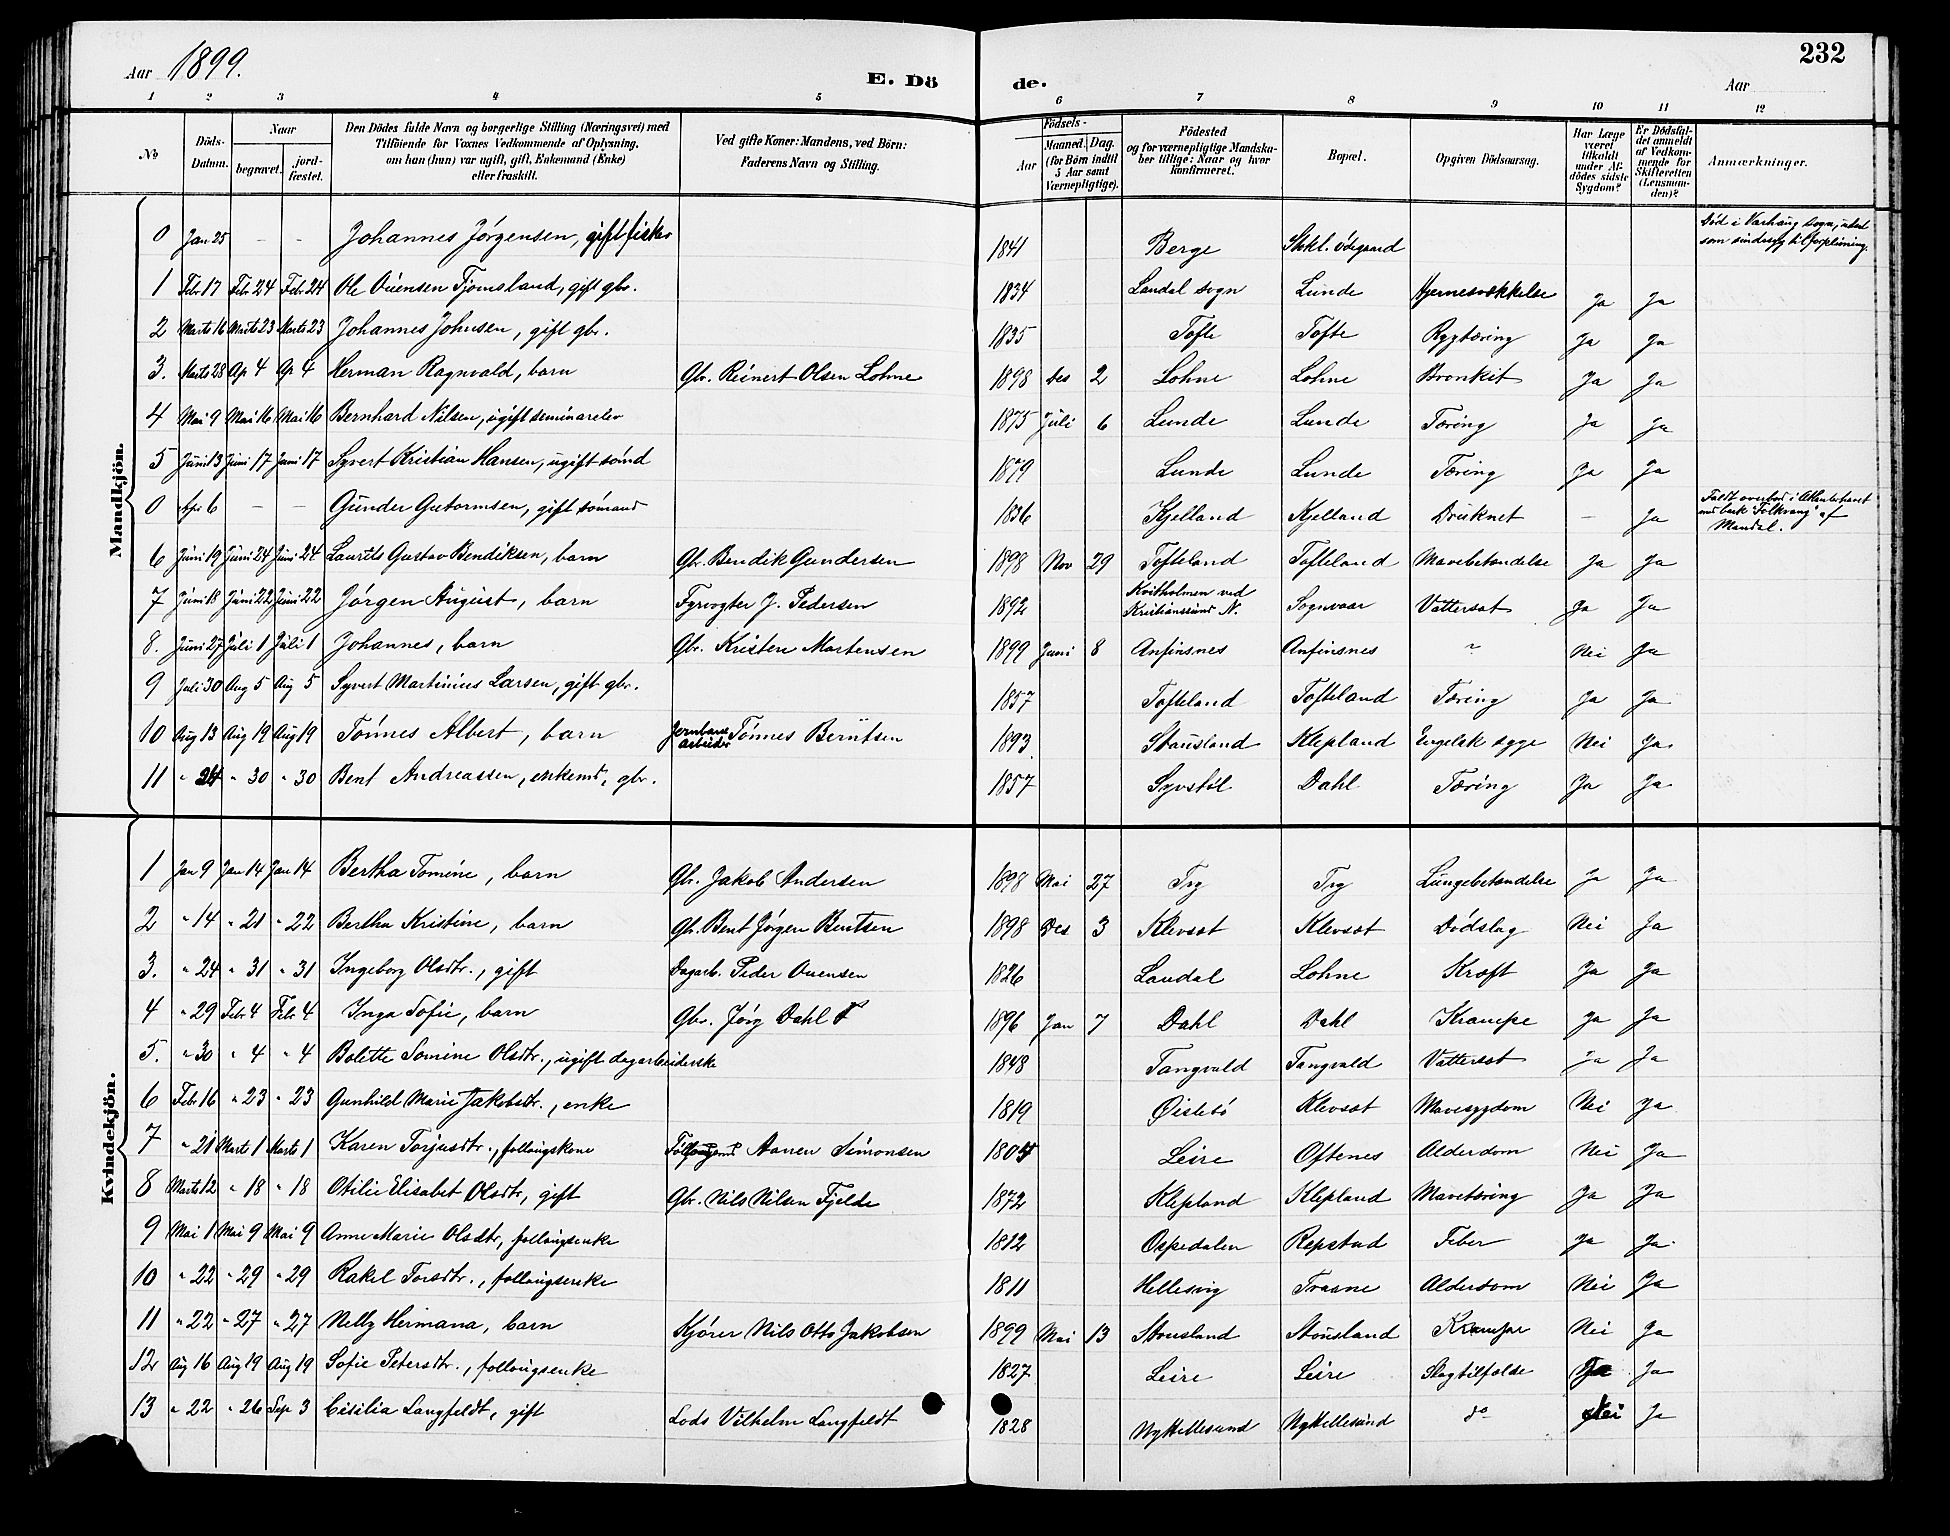 232
Aar 1899. E. Dö de. Aar
1 2 3 4 5 6 7 8 9 10 11 12
No
Döds-Datum.
Naar
begravet.
jord-fæstet.
Den Dödes fulde Navn og borgerlige Stilling (Næringsvei) med
Tilföiende for Voxnes Vedkommende af Oplysning,
om han (hun) var ugift, gift, Enkemand (Enke)
eller fraskilt.
Ved gifte Koner: Mandens, ved Börn:
Faderens Navn og Stilling.
Födsels-
Aar
Maaned. Dag.
(for Börn indtil
5 Aar samt
Værnepligtige).
Födested
og for værnepligtige Mandska-
ber tillige: Naar og hvor
konfirmeret.
Bopæl.
Opgiven Dödsaarsag.
Har Læge
været
tilkaldt
under Af-
dödes sidste
Sygdom?
Er Dödsfal-
det anmeldt
af Vedkom-
mende for
Skifteretten
(Lensman-
den)?
Anmærkninger.
Mandkjön.
0 Jan 25 – – Johannes Jørgensen, gift fisker 1841 Berge Shkl. Ødegaard Død i Varhaug sogn, udsat som sindssyg til forpleining.
1 Febr 17 Febr 24 Febr 24 Ole Ouensen Tjomsland, gift gbr. 1834 Laudal sogn Lunde Hjernesvækkelse Ja Ja
2 Marts 16 Marts 23 Marts 23 Johannes Johnsen, gift gbr. 1835 Tofte Tofte Rygtæring Ja Ja
3. Marts 28 Ap 4 Ap 4 Herman Ragnvald, barn Gbr. Reinert Olsen Lohne 1898 Des 2 Lohne Lohne Bronkit Ja Ja
4 Mai 9 Mai 16 Mai 16 Bernhard Nilsen, ugift seminarelev 1875 Juli 6 Lunde Lunde Tæring Ja Ja
5 Juni 13 Juni 17 Juni 17 Syvert Kristian Hansen, ugift sømd 1879 Lunde Lunde Tæring Ja Ja
0 Apr 6 – – Gunder Gutormsen, gift sømand 1836 Kjelland Kjelland Druknet – Ja Faldt overbord i Atlanterhavet med bark "Folkvang" af Mandal.
6 Juni 19 Juni 24 Juni 24 Laurits Gustav Bendiksen, barn Gbr. Bendik Gundersen 1898 Nov 29 Tofteland Tofteland Mavebetændelse Ja Ja
7 Juni 18 Juni 22 Juni 22 Jørgen August, barn Fyrvogter J. Pedersen 1892 Kvitholmen ved Kristianssund N. Sognvaar Vattersot Ja Ja
8. Juni 27 Juli 1 Juli 1 Johannes, barn Gbr. Kristen Mortensen 1899 Juni 8 Anfinsnes Anfinsnes ~ Nei Ja
9 Juli 30 Aug 5 Aug 5 Syvert Martinius Larsen, gift gbr. 1857 Tofteland Tofteland Tæring Ja Ja
10 Aug 13 Aug 19 Aug 19 Tønnes Albert, barn Jernbane arbeider Tønnes Berntsen 1893 Stausland Klepland Engelsk syge Nei Ja
11 " 24 " 30 " 30 Bent Andreassen, enkemd, gbr. 1857 Syvstøl Dahl Tæring Ja Ja
Kvindekjön.
1 Jan 9 Jan 14 Jan 14 Bertha Tomine, barn Gbr. Jakob Andersen 1898 Mai 27 Try Try Lungebetændelse Ja Ja
2 " 14 " 21 " 22 Bertha Kristine, barn Gbr. Bent Jørgen Bentsen 1898 Des 3 Klevsæt Klevsæt Dødslag Nei Ja
3. " 24 " 31 " 31 Ingeborg Olsdtr., gift Dagarb. Peder Ouensen 1826 Laudal Lohne Kræft Ja Ja
4 " 29 Febr 4 Febr 4 Inga Sofie, barn Gbr. Jørg Dahl † 1896 Jan 7 Dahl Dahl Krampe Ja Ja
5. " 30 " 4 " 4 Bolette Somine Olsdtr., ugift dagarbeiderske 1848 Tangvald Tangvald Vattersot Ja Ja
6 Febr 16 " 23 " 23 Gunhild Marie Jakobsdtr., enke 1819 Øislebø Klevsæt Mavesygdom Nei Ja
7 " 21 Marts 1 Marts 1 Karen Torjusdtr., follougskone Follougsmd Aanen Simonsen 1804 Leire Oftenes Alderdom Nei Ja
8 Marts 12 " 18 " 18 Otilie Elisabet Olsdtr, gift Gbr. Nils Nilsen Fjelde 1872 Klepland Klepland Mavetæring Ja Ja
9 Mai 1 Mai 9 Mai 9 Anne Marie Olsdtr, follougsenke 1812 Ospedalen Repstad Feber Ja Ja
10 " 22 " 29 " 29 Rakel Torsdtr., follougsenke 1811 Hellesvig Traane Alderdom Nei Ja
11 " 22 " 27 " 27 Nelly Hermana, barn Kjører Nils Otto Jakobsen 1899 Mai 13 Stousland Stousland Krampe Nei Ja
12 Aug 16 Aug 19 Aug 19 Sofie Petersdtr., follougsenke 1827 Leire Leire Slagtilfælde Ja Ja
13 " 22 " 26 Sep 3 Cisilia Langfeldt, gift Lods Vilhelm Langfeldt 1828 Ny Hellesund Ny Hellesund do Nei Ja